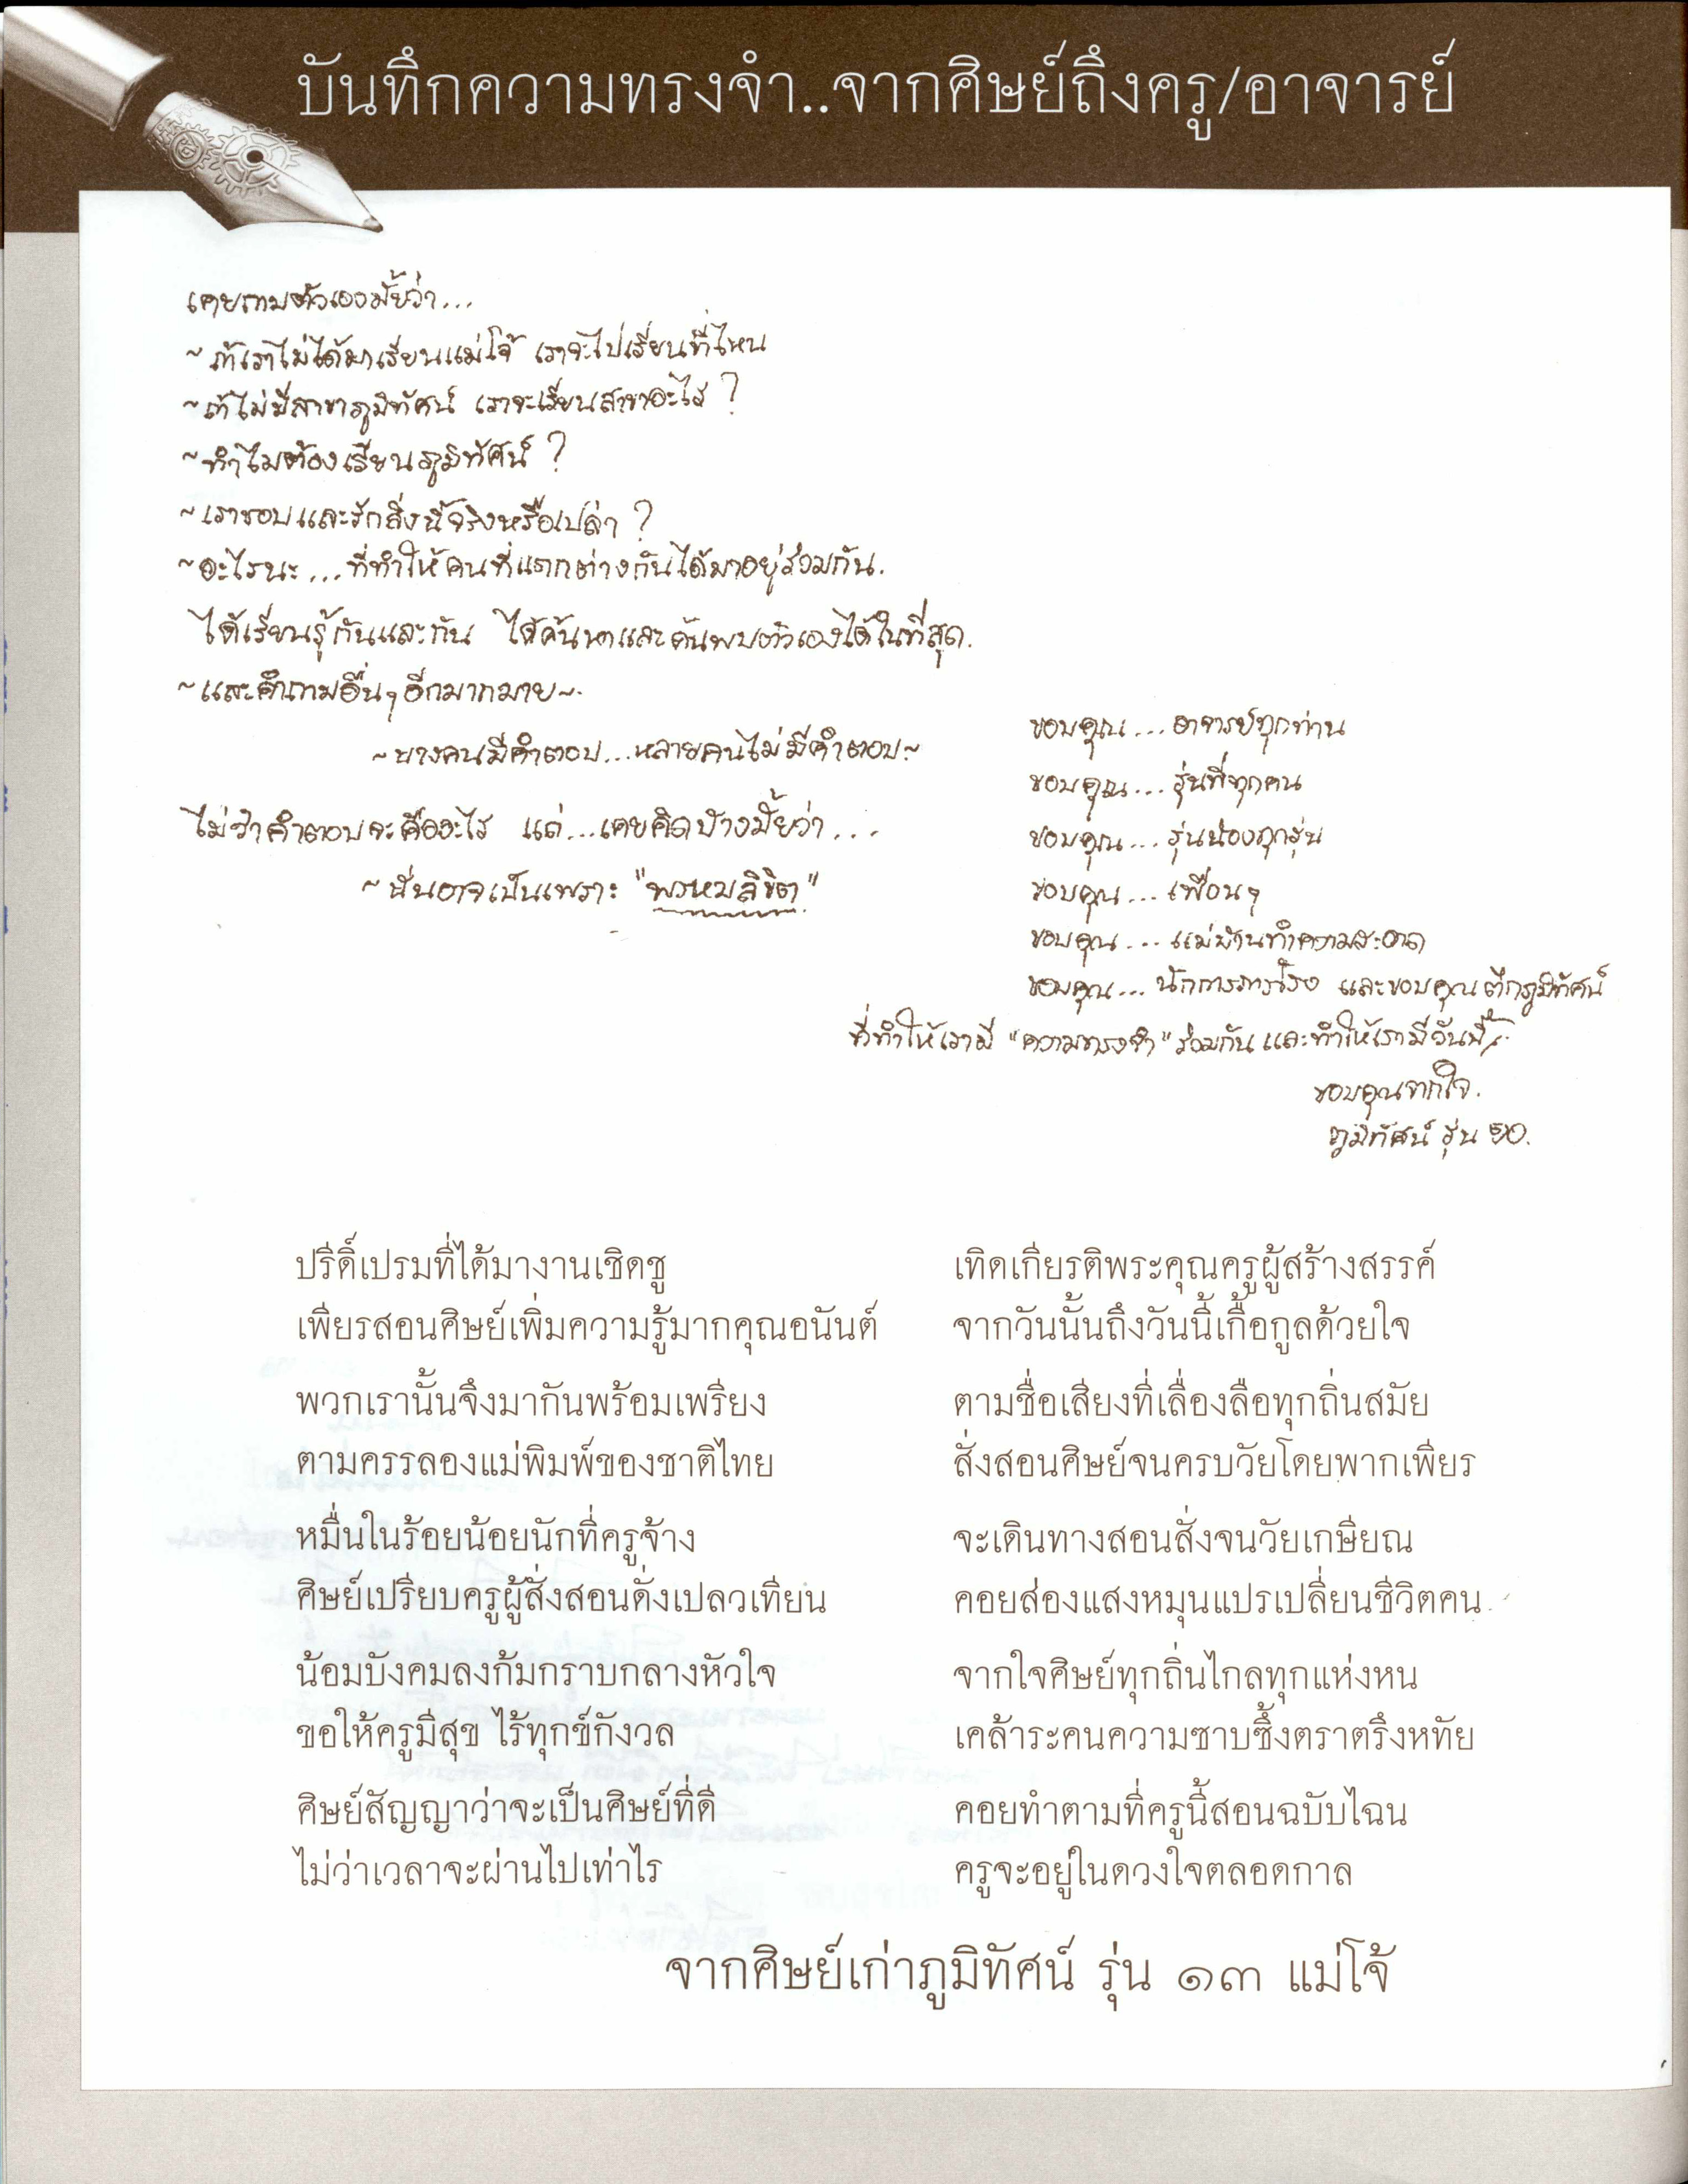 บันทึกความทรงจำ..จากศิษย์ถึงครู/อาจารย์
เคยถามตัวเองมั้ยว่า...
~ถ้าเราไม่ได้มาเรียนแม่โจ้ เราจะไปเรียนที่ไหน
~ถ้าไม่มีสาขาภูมิทัศน์ เราจะเรียนสาขาอะไร ?
~ทำไมต้องเรียนภูมิทัศน์ ?
~เราชอบและรักสิ่งนี้จริงหรือเปล่า ?
~อะไรนะ...ที่ทำให้คนที่แตกต่างกันได้มาอยู่ร่วมกัน.
ได้เรียนรู้กันและกัน ได้ค้นหาและค้นพบตัวเองได้ในที่สุด.
~และคำถามอื่นๆอีกมากมาย~.
~บางคนมีคำตอบ...หลายคนไม่มีคำตอบ~
ไม่ว่าคำตอบจะคืออะไร แต่...เคยคิดบ้างมั้ยว่า...
~นั่นอาจเป็นเพราะ "พรหมลิขิต"
ขอบคุณ...อาจารย์ทุกท่าน
ขอบคุณ...รุ่นพี่ทุกคน
ขอบคุณ...รุ่นน้องทุกรุ่น
ขอบคุณ...เพื่อนๆ
ขอบคุณ...แม่บ้านทำความสะอาด
ขอบคุณ...นักการภารโรง และขอบคุณตึกภูมิทัศน์
ที่ทำให้เรามี "ความทรงจำ" ร่วมกัน และทำให้เรามีวันนี้
ขอบคุณจากใจ.
ภูมิทัศน์ รุ่น
ปริดิ์เปรมที่ได้มางานเชิดชู เทิดเกียรติพระคุณครูผู้สร้างสรรค์
เพียรสอนศิษย์เพิ่มความรู้มากคุณอนันต์ จากวันนั้นถึงวันนี้เกื้อกูลด้วยใจ
พวกเรานั้นจึงมากันพร้อมเพรียง ตามชื่อเสียงที่เลื่องลือทุกถิ่นสมัย
ตามครรลองแม่พิมพ์ของชาติไทย สั่งสอนศิษย์จนครบวัยโดยพากเพียร
หมื่นในร้อยน้อยนักที่ครูจ้าง จะเดินทางสอนสั่งจนวัยเกษียณ
ศิษย์เปรียบครูผู้สั่งสอนดั่งเปลวเทียน คอยส่องแสงหมุนแปรเปลี่ยนชีวิตคน
น้อมบังคมลงก้มกราบกลางหัวใจ จากใจศิษย์ทุกถิ่นไกลทุกแห่งหน
ขอให้ครูมีสุข ไร้ทุกข์กังวล เคล้าระคนความซาบซึ้งตราตรึงหทัย
ศิษย์สัญญาว่าจะเป็นศิษย์ที่ดี คอยทำตามที่ครูนี้สอนฉบับไฉน
ไม่ว่าเวลาจะผ่านไปเท่าไร ครูจะอยู่ในดวงใจตลอดกาล
จากศิษย์เก่าภูมิทัศน์ รุ่น ๑๓ แม่โจ้